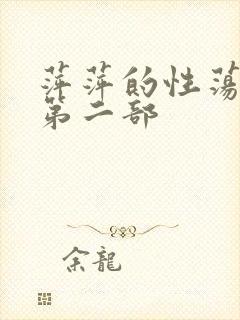 萍萍的性蕩
第二部
余龍